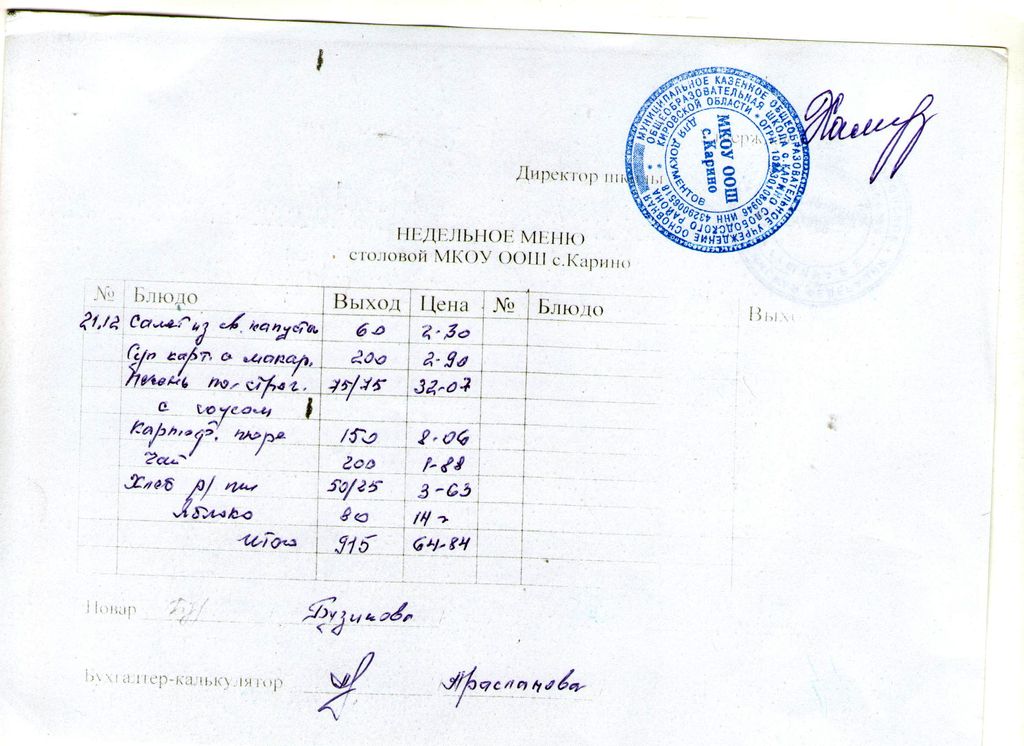 МУНИЦИПАЛЬНОЕ КАЗЕННОЕ ОБЩЕОБРАЗОВАТЕЛЬНОЕ УЧРЕЖДЕНИЕ ОСНОВНАЯ
ОБЩЕОБРАЗОВАТЕЛЬНАЯ ШКОЛА с.КАРИНО СЛОБОДСКОГО РАЙОНА
КИРОВСКОЙ ОБЛАСТИ * ОГРН ИНН
ДЛЯ ДОКУМЕНТОВ
МКОУ ООШ
с.Карино
Директор школы
НЕДЕЛЬНОЕ МЕНЮ
столовой МКОУ ООШ с.Карино
№ Блюдо Выход Цена № Блюдо Выхо
21,12 Салат из св. капусты 60 2-30
Суп карт. с макар. 200 2-90
Печень по-строг. 75/75 32-07
с соусом
Картоф. пюре 150 8-06
Чай 200 1-88
Хлеб р/пш 50/25 3-63
Яблоко 80 14-
Итого 915 64-84
Повар Бузикова
Бухгалтер-калькулятор Арасланова